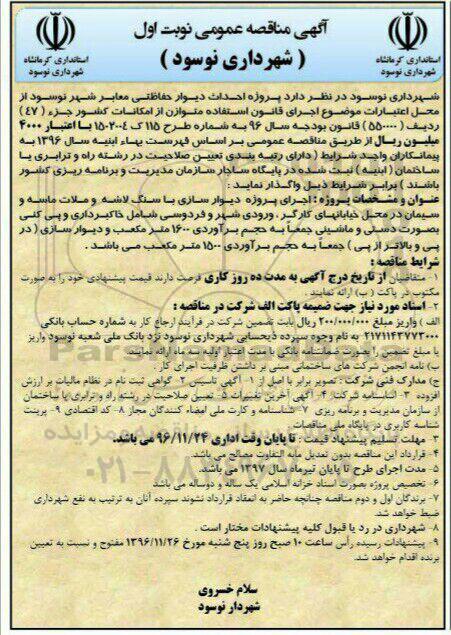 آگهی مناقصه عمومی نوبت اول
( شهرداری نوسود )
استانداری کرمانشاه
شهرداری نوسود
استانداری کرمانشاه
شهرداری نوسود
شهرداری نوسود در نظر دارد پروژه احداث دیوار حفاظتی معابر شهر نوسود از
محل اعتبارات موضوع اجرای قانون استفاده متوازن از امکانات کشور جزء ( ۴۷ )
ردیف ( ۵۵۰۰۰۰ ) قانون بودجه سال ۹۶ به شماره طرح ۱۱۵ ک ۱۵۰۳۰۰۴ با اعتبار ۴۰۰۰
میلیون ریال از طریق مناقصه عمومی بر اساس فهرست بهاء ابنیه سال ۱۳۹۶ به
پیمانکاران واجد شرایط ( دارای رتبه بندی تعیین صلاحیت در رشته راه و ترابری یا
ساختمان ( ابنیه ) ثبت شده در پایگاه ساجار سازمان مدیریت و برنامه ریزی کشور
باشند ) برابر شرایط ذیل واگذار نمایند :
عنوان و مشخصات پروژه : اجرای پروژه دیوار سازی با سنگ لاشه و ملات ماسه و
سیمان در محل خیابانهای کارگر ، ورودی شهر و فردوسی شامل خاکبرداری و پی کنی
بصورت دستی و ماشینی جمعاً به حجم برآوردی ۱۶۰۰ متر مکعب و دیوار سازی ( در
پی و بالاتر از پی ) جمعاً به حجم برآوردی ۱۵۰۰ متر مکعب می باشد .
شرایط مناقصه :
۱- متقاضیان از تاریخ درج آگهی به مدت ده روز کاری فرصت دارند قیمت پیشنهادی خود را به صورت
مکتوب در پاکت ( ب ) ارائه نمایند .
۲- اسناد مورد نیاز جهت ضمیمه پاکت الف شرکت در مناقصه :
الف ) واریز مبلغ ۲۰۰/۰۰۰/۰۰۰ ریال بابت تضمین شرکت در فرآیند ارجاع کار به شماره حساب بانکی
۲۱۷۱۱۴۳۷۷۳۰۰۰ به نام وجوه سپرده ذیحسابی شهرداری نوسود نزد بانک ملی شعبه نوسود واریز
یا مبلغ تضمین را بصورت ضمانتنامه بانکی با مدت اعتبار اولیه سه ماه ارائه نمایند.
ب) نامه انجمن شرکت های ساختمانی مبنی بر داشتن ظرفیت اجرای کار .
ج) مدارک فنی شرکت : تصویر برابر با اصل از ۱- آگهی تاسیس ۲- گواهی ثبت نام در نظام مالیات بر ارزش
افزوده ۳- اساسنامه شرکت ۴- آگهی آخرین تغییرات ۵- تعیین صلاحیت در رشته راه و ترابری یا ساختمان
از سازمان مدیریت و برنامه ریزی ۷- شناسنامه و کارت ملی امضاء کنندگان مجاز ۸- کد اقتصادی ۹- پرینت
شناسه کاربری در پایگاه ملی مناقصات
۳- مهلت تسلیم پیشنهاد قیمت : تا پایان وقت اداری ۹۶/۱۱/۲۴ می باشد.
۴- قرارداد این مناقصه بدون تعدیل مابه التفاوت مصالح می باشد.
۵- مدت اجرای طرح تا پایان تیرماه سال ۱۳۹۷ می باشد.
۶- تخصیص پروژه بصورت اسناد خزانه اسلامی یک ساله و دوساله می باشد
۷- برندگان اول و دوم مناقصه چنانچه حاضر به انعقاد قرارداد نشوند سپرده آنان به ترتیب به نفع شهرداری
ضبط خواهد شد.
۸- شهرداری در رد یا قبول کلیه پیشنهادات مختار است .
۹- پیشنهادات رسیده رأس ساعت ۱۰ صبح روز پنج شنبه مورخ ۱۳۹۶/۱۱/۲۶ مفتوح و نسبت به تعیین
برنده اقدام خواهد شد.
سلام خسروی
شهردار نوسود